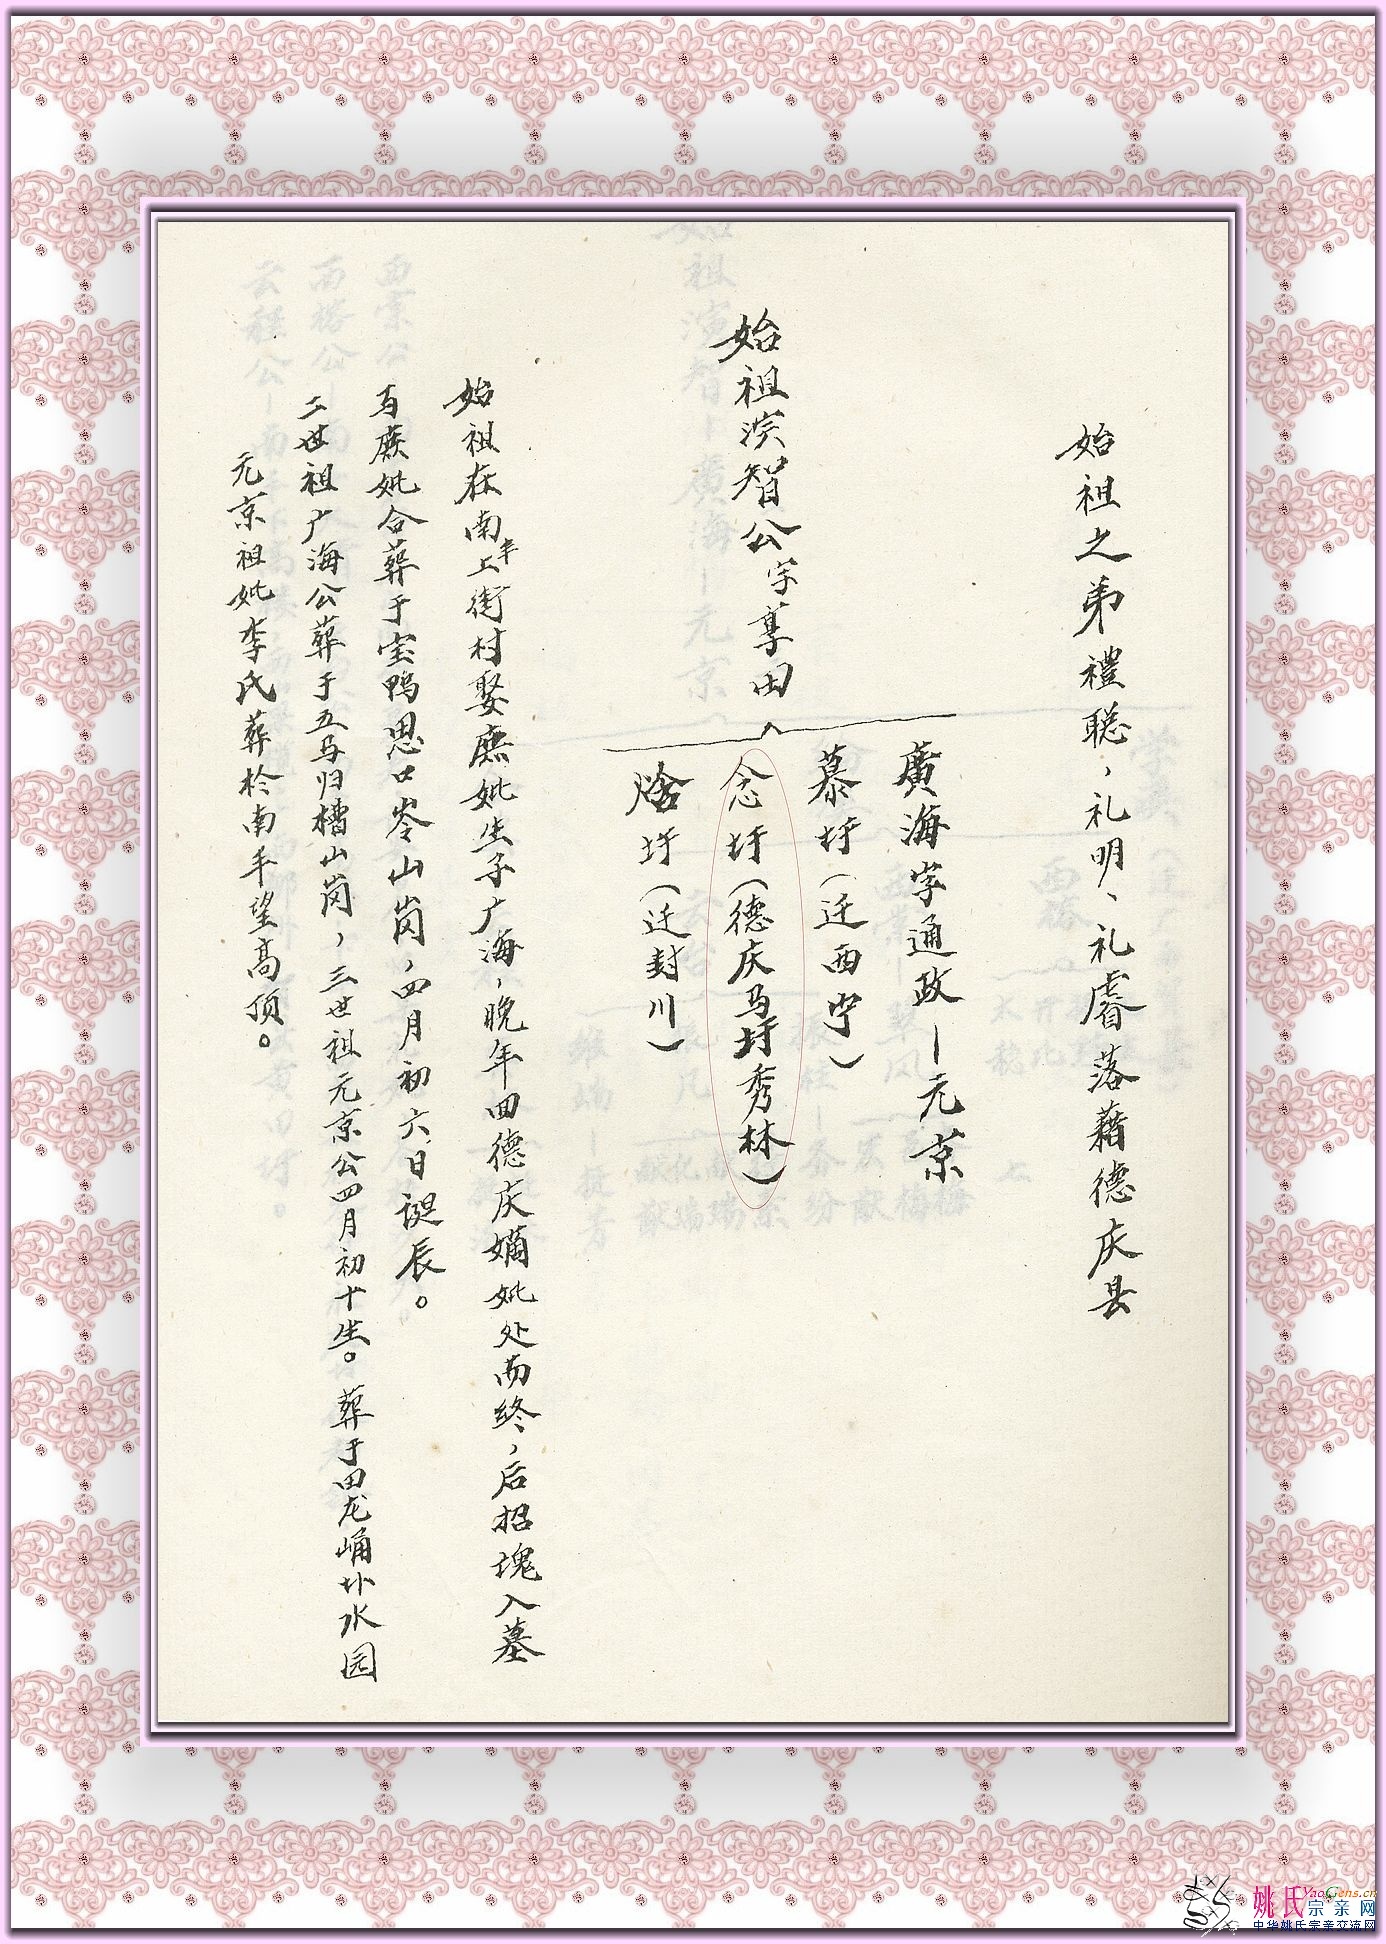 始祖之弟禮聪、礼明、礼睿落藉德庆县
始祖演智公字享田
廣海字通政—元京
慕圩（迁西宁）
念圩（德庆马圩秀林）
圩（迁封川）
始祖在南丰上街村娶庶妣生子广海，晚年回德庆嫡妣处而终，后招魂入墓
与庶妣合葬于宝鸭思口岑山岗，四月初六日诞辰。
二世祖广海公葬于五马归槽山岗，三世祖元京公四月初十生。葬于田龙㟅圤水园
元京祖妣李氏葬於南丰望高顶。
姚氏宗亲网
YaoGens.cn
中华姚氏宗亲交流网